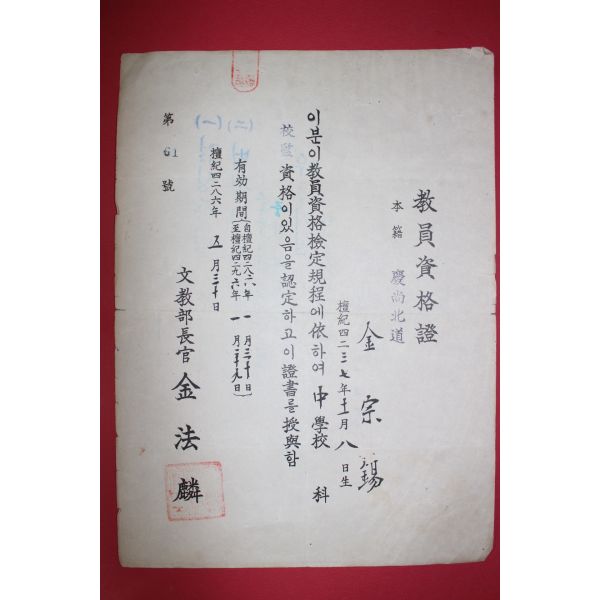 教員資格證
本籍 慶尚北道
金宗錫
檀紀四二三七年十一月八日生
이분이教員資格檢定規程에依하여 中學校 科
校監 資格이있음을認定하고이證書를授與함
有効期間(自檀紀四二八六年 一月三十日
至檀紀四二九六年 一月二十九日)
檀紀四二八六年 五月三十日
文教部長官 金法麟
第 61 號